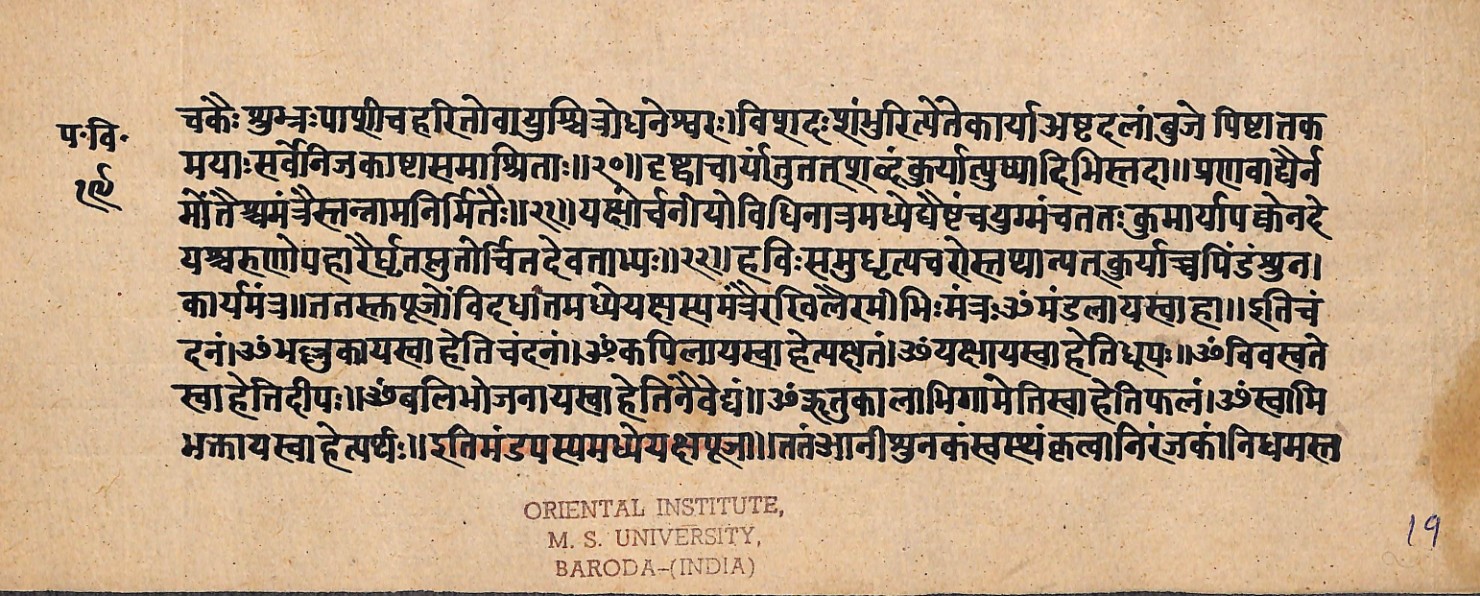 चकैः शुग्न्रःपाशीचहरितोवायुश्चित्रोधनेश्वरः।विशदःशंभुरित्येतेकार्याअष्टदलांबुजे पिष्टातक
प॰वि॰
मयाःसर्वेनिजकाष्टासमाश्रिताः॥२०॥दृष्ट्वाचार्यांतुतत्शब्दंकुर्यात्पुष्पादिभिस्तदा॥प्रणवाद्यैर्न
१९
मोंतैश्चमंत्रैस्तन्नामनिर्मितैः॥२१॥यक्षोर्चनीयोविधिनात्रमध्ये चंचयुग्मंचततःकुमार्यापक्वेनदे
यश्चरुणोपहारैर्घृतप्लुतोर्चितदेवताभ्यः॥२२॥हविःसमुधृत्यचरोस्तथान्यतकुर्याच्चपिंडंशुन।
कार्यमंत्र॥ततस्तपूजांविदधीतमध्येयक्षस्यमंत्रैरखिलैरमीभिःमंत्रःॐमंडलायस्वाहा॥इतिचं
दनं।ॐभद्रुकायस्वाहेतिचंदनं।ॐकपिलायस्वाहेत्यक्षतं।ॐयक्षायस्वाहेतिधूपः॥ॐविवस्वते
स्वाहेतिदीपः॥ॐबलिभोजनायस्वाहेतिनैवेद्यं॥ॐऋतुकालाभिगामेतिस्वाहेतिफलं।ॐस्वामि
भक्तायस्वाहेत्यर्थः॥इतिमंडपस्यमध्येयक्षपूजा॥ततंआनीशुनकंस्वस्थंकृत्वानिरंजकं।निधमस्त
ORIENTAL INSTITUTE,
M. S. UNIVERSITY,
BARODA-(INDIA)
19